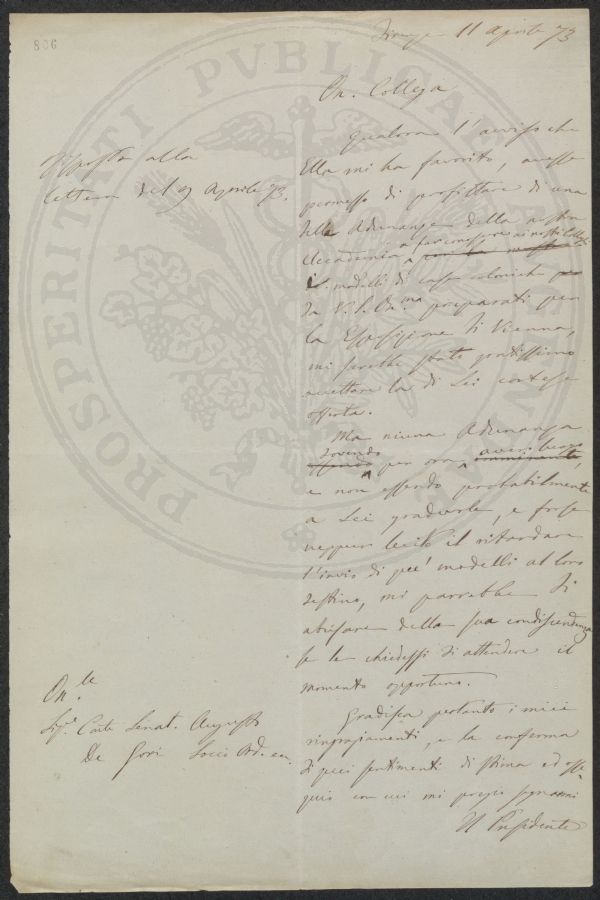 806
Firenze 11 aprile 73
On. Collega
Risposta alla
lettera del 9 Aprile 73.
Qualora l'avviso che
Ella mi ha favorito, avesse
permesso di profittare di una
delle Adunanze della nostra
Accademia a far conoscere ai nostri Colleghi
i modelli di case coloniche
da V. S. On.ma preparati per
la Esposizione di Vienna,
mi sarebbe stato gratissimo
accettare la di Lei cortese
offerta.
Ma niuna Adunanza
dovendo per ora aver luogo
e non essendo probabilmente
a Lei gradevole, e forse
neppur lecito il ritardare
l'invio di pei modelli al loro
destino, mi parrebbe di
abusare della sua condiscendenza
se le chiedessi di attendere il
momento opportuno.
Gradisca pertanto i miei
ringraziamenti, e la conferma
di peci sentimenti di stima ed osse
quio con cui mi pregio segnarmi
Il Presidente
On.le
Sig.e Conte Senat. Augusto
De Gori Socio Ord.
PROSPERITATI PUBLICAE